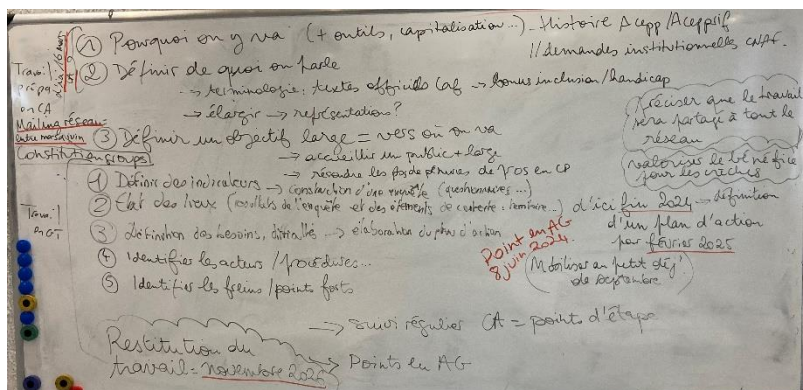 ① Pourquoi on y va (+ outils, capitalisation...) - Histoire Acepp/Aceppiif
// demandes institutionnelles CNAF.
② Définir de quoi on parle
→ terminologie : textes officiels Caf → bonus inclusion/handicap
→ élargir → représentations ?
③ Définir un objectif large = vers où on va
→ accueillir un public + large
→ résoudre les pbs de pénuries de pros en CP
Travail
prépa
en CA
Mailing réseau
entre mars et juin
Constitution groupes
préciser que le travail
sera partagé à tout le
réseau
valoriser le bénéfice
pour les crèches
Travail
en GT
① Définir des indicateurs → construction d'une enquête (questionnaires...)
② État des lieux (résultats de l'enquête et des éléments de contexte : territoire...) d'ici fin 2024 → définition
d'un plan d'action
pour février 2025
③ définition des besoins, difficultés → élaboration du plan d'action
④ Identifier les acteurs / procédures...
⑤ Identifier les freins / points forts
Point en AG
8 juin 2024.
(Mobiliser au petit déj'
de septembre)
→ suivi régulier CA = points d'étape
→ Points en AG
Restitution du
travail = novembre